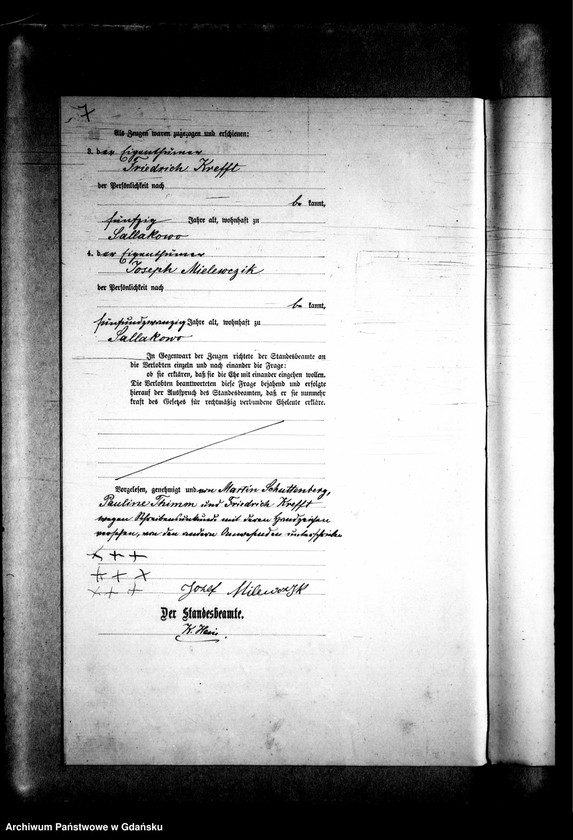 7
Als Zeugen waren zugezogen und erschienen:
3. der Eigenthümer
Friedrich Krefft
der Persönlichkeit nach
be kannt,
fünfzig Jahre alt, wohnhaft zu
Sallakowo
4. der Eigenthümer
Joseph Mielewczik
der Persönlichkeit nach
be kannt,
fünfundzwanzig Jahre alt, wohnhaft zu
Sallakowo
In Gegenwart der Zeugen richtete der Standesbeamte an
die Verlobten einzeln und nach einander die Frage:
ob sie erklären, daß sie die Ehe mit einander eingehen wollen.
Die Verlobten beantworteten diese Frage bejahend und erfolgte
hierauf der Ausspruch des Standesbeamten, daß er sie nunmehr
kraft des Gesetzes für rechtmäßig verbundene Eheleute erkläre.
Vorgelesen, genehmigt und von Martin Schuttenberg,
Pauline Thimm und Friedrich Krefft
wegen Schreibensunkunde mit deren Handzeichen
versehen, von den andern Anwesenden unterschrieben
+++
+++
+++ Jozef Milewczik
Der Standesbeamte.
Archiwum Państwowe w Gdańsku